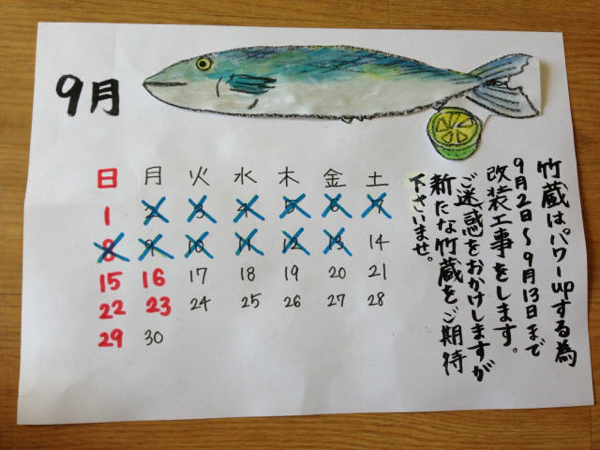 9月
日 月 火 水 木 金 土
1 2 3 4 5 6 7
8 9 10 11 12 13 14
15 16 17 18 19 20 21
22 23 24 25 26 27 28
29 30
竹蔵はパワーupする為
9月2日〜9月13日まで
改装工事をします。
ご迷惑をおかけしますが
新たな竹蔵をご期待
下さいませ。